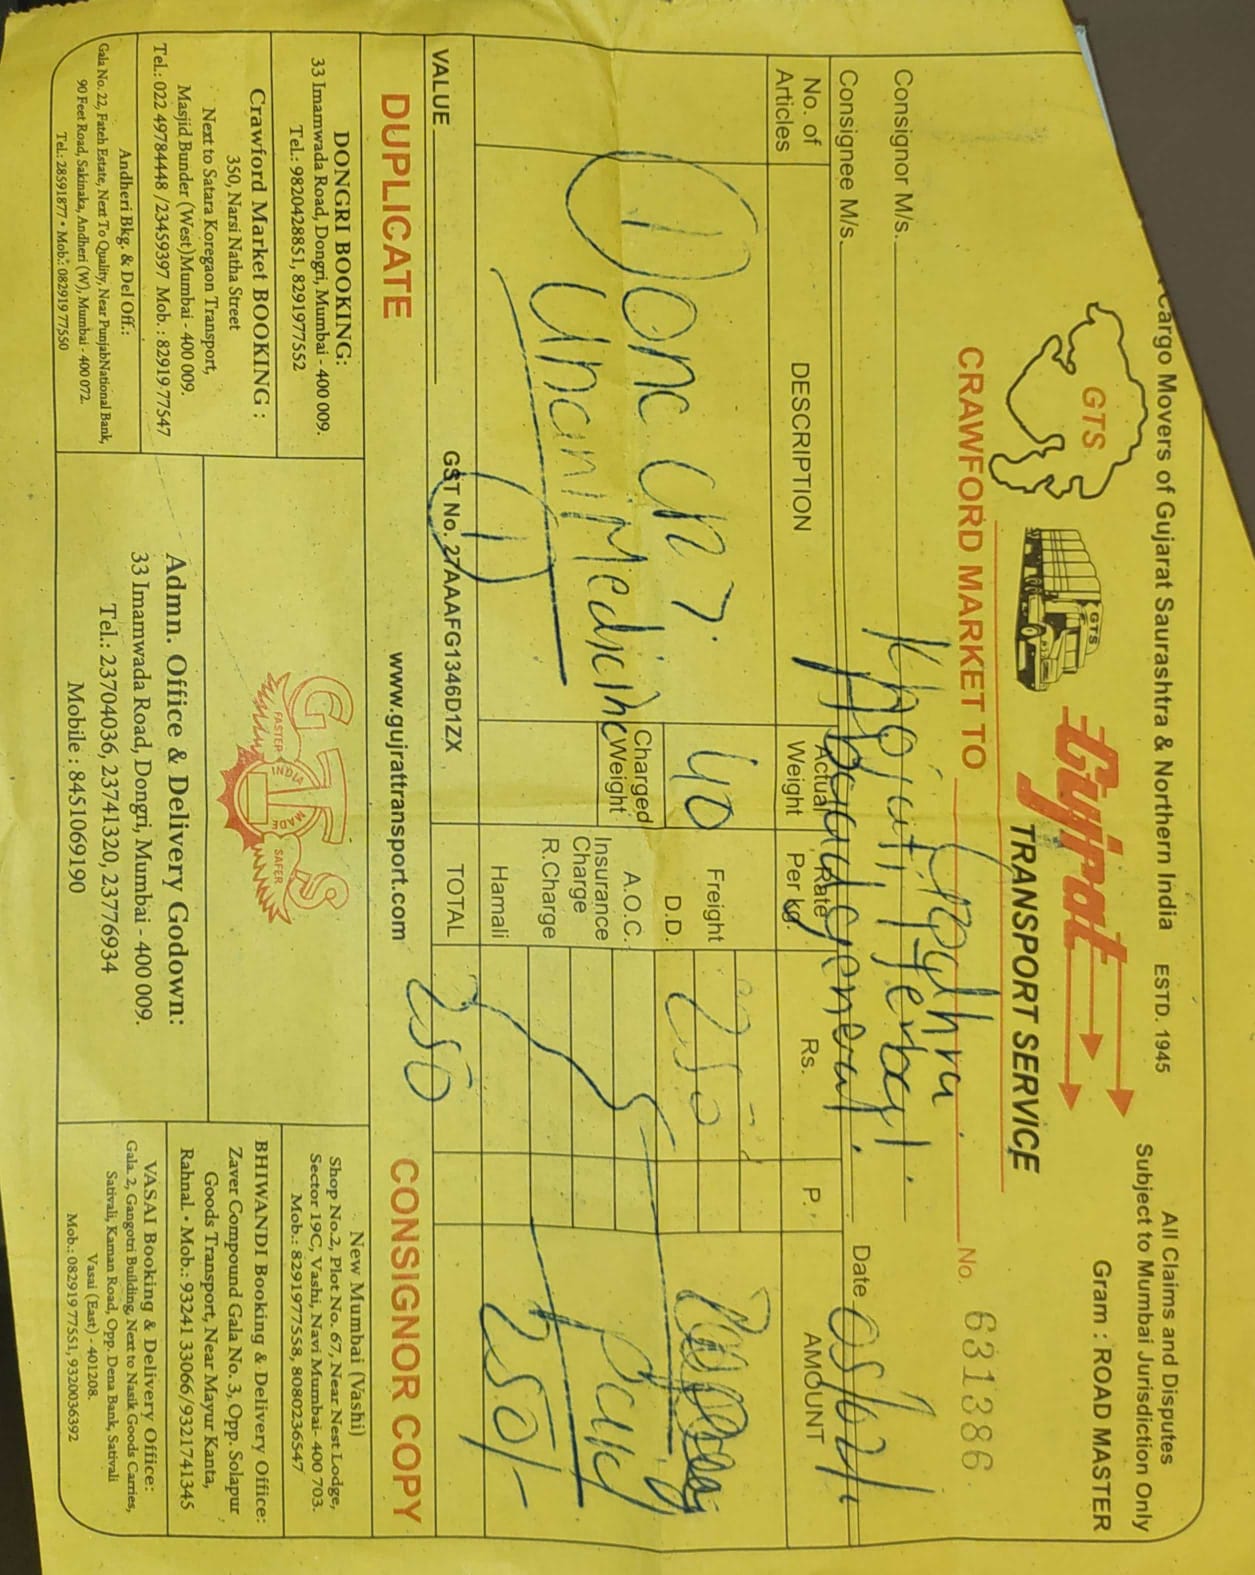 Cargo Movers of Gujarat Saurashtra & Northern India ESTD. 1945
All Claims and Disputes
Subject to Mumbai Jurisdiction Only
Gram : ROAD MASTER
GTS
GTS
Gujrat
TRANSPORT SERVICE
CRAWFORD MARKET TO Godhra
No. 631386
Consignor M/s. Khojati Herbal.
Consignee M/s. Dawoodgeneral.
Date 05/02/
No. of Articles
DESCRIPTION
Actual Weight
Rate Per kg.
Rs.
P.
AMOUNT
Donc
40
Freight 250
D.D.
Unani Medicine
Charged Weight
A.O.C.
Insurance Charge
R.Charge
Hamali
250/-
VALUE
GST No. 27AAAFG1346D1ZX
TOTAL 250
DUPLICATE
www.gujrattransport.com
CONSIGNOR COPY
DONGRI BOOKING:
33 Imamwada Road, Dongri, Mumbai - 400 009.
Tel.: 9820428851, 8291977552
Crawford Market BOOKING :
350, Narsi Natha Street
Next to Satara Koregaon Transport,
Masjid Bunder (West)Mumbai - 400 009.
Tel.: 022 49784448 /23459397 Mob. : 82919 77547
Andheri Bkg. & Del Off.:
Gala No. 22, Fateh Estate, Next To Quality, Near PunjabNational Bank,
90 Feet Road, Sakinaka, Andheri (W), Mumbai - 400 072.
Tel.: 28591877 • Mob.: 08291977550
GTS
FASTER
SAFER
INDIA
MADE
Admn. Office & Delivery Godown:
33 Imamwada Road, Dongri, Mumbai - 400 009.
Tel.: 23704036, 23741320, 23776934
Mobile : 8451069190
New Mumbai (Vashi)
Shop No.2, Plot No. 67, Near Nest Lodge,
Sector 19C, Vashi, Navi Mumbai- 400 703.
Mob.: 8291977558, 8080236547
BHIWANDI Booking & Delivery Office:
Zaver Compound Gala No. 3, Opp. Solapur
Goods Transport, Near Mayur Kanta,
Rahnal. • Mob.: 93241 33066/9321741345
VASAI Booking & Delivery Office:
Gala. 2, Gangotri Building, Next to Nasik Goods Carries,
Sativali, Kaman Road, Opp. Dena Bank, Sativali
Vasai (East) - 401208.
Mob.: 08291977551, 9320036392